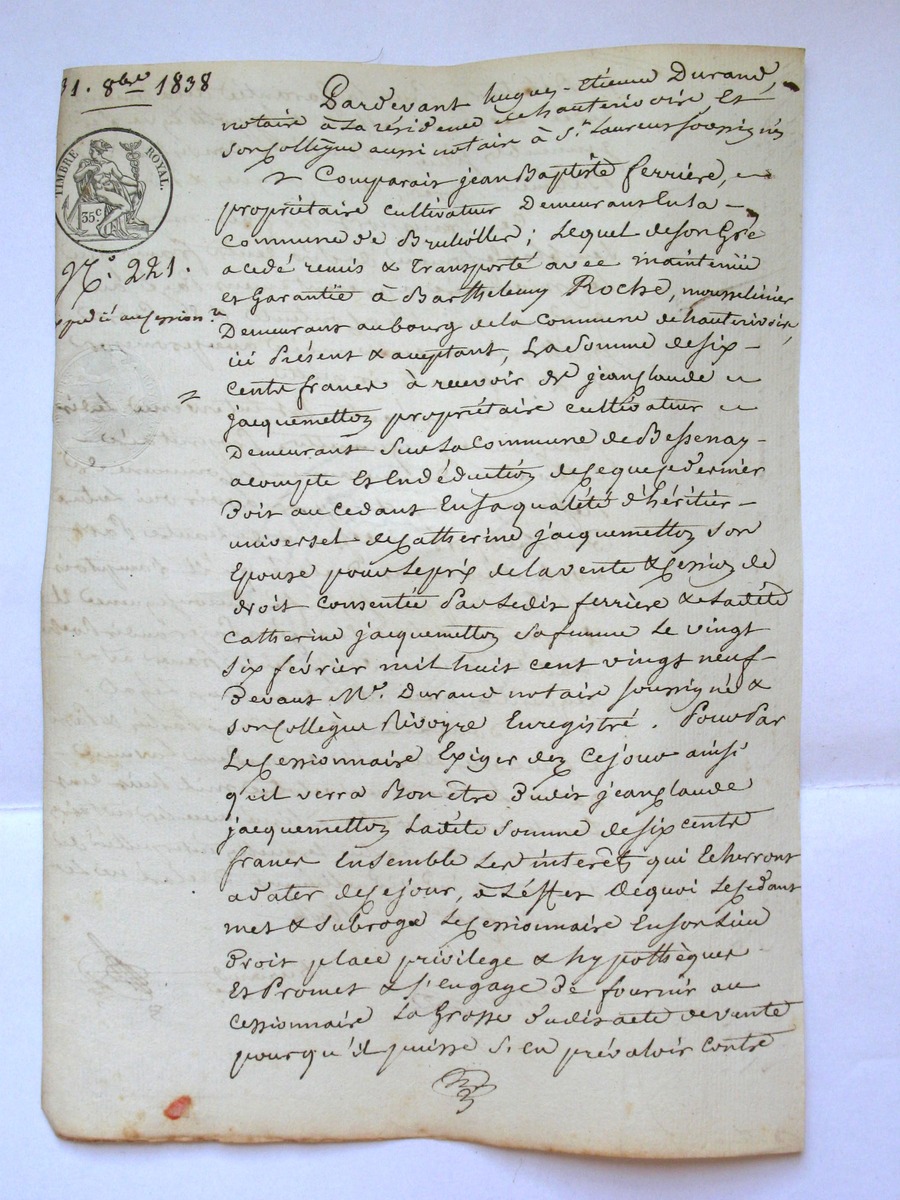 31. 8bre 1838
TIMBRE ROYAL.
35c
No. 221.
expedié au cessionre
Pardevant hugues-étienne Durand,
notaire à la résidence de hauterivoire, Et
son Collègue aussi notaire à St Laurent soussignés
Comparait jean Baptiste ferrière,
propriétaire cultivateur Demeurant En la
Commune de Brullolles; Lequel de son Gré
a cédé remis & transporté avec maintenüe
et Garantïe à Barthelemy Roche, mousselinier
Demeurant au bourg de la Commune de hauterivoire,
ici Présent & acceptant, La Somme de six
Cents francs à recevoir de jean Claude
jacquemetton propriétaire cultivateur
Demeurant Sur La Commune de Bessenay
acompte Et En déduction de Ce que ce dernier
Doit au Cédant En sa qualité d'héritier
universel de Catherine jacquemetton Son
Epouse pour Le prix de la vente & Cession de
droit consentie Par Ledit ferrière & Ladite
Catherine jacquemetton Sa femme Le vingt
Six février mil huit cent vingt neuf
Devant Me. Durand notaire soussigné &
Son Collègue Rivoyre Enregistré. Pour Par
Le Cessionnaire Exiger dez Ce jour ainsi
qu'il verra Bon être Dudit jean Claude
jacquemetton Ladite Somme de six cents
francs Ensemble Les interêts qui Echerront
a dater de Ce jour, à L'éffet De quoi Le Cédant
met & Subroge Le Cessionnaire En son Lieu
Droit place privilege & hypothèques
Et Promet & S'engage De fournir au
Cessionnaire La Grosse Dudit acte de vente
pour qu'il puisse S'en prévaloir Contre